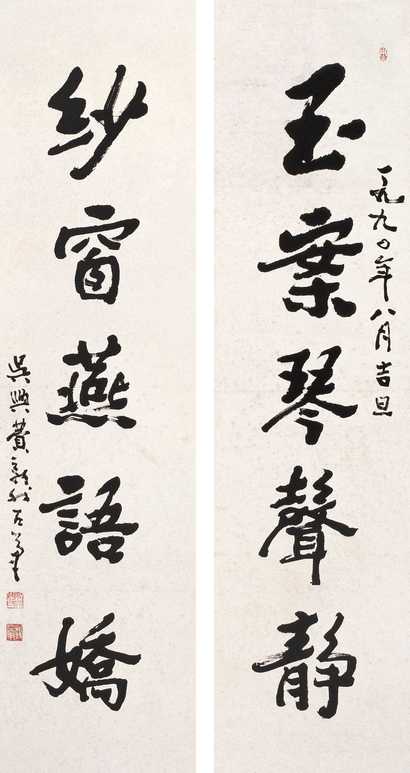 玉案琴聲静
一九九〇年八月吉旦
紗窗燕語嬌
吳興費新我左筆